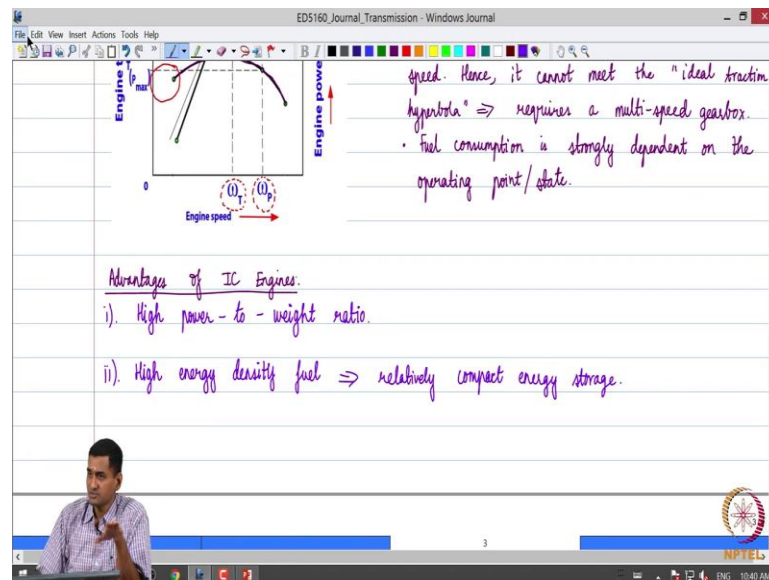 ED5160_Journal_Transmission - Windows Journal
File Edit View Insert Actions Tools Help
B I
Engine t
T(P max)
Engine powe
0
ω_T ω_P
Engine speed
speed. Hence, it cannot meet the "ideal traction
hyperbola" ⇒ requires a multi-speed gearbox.
• Fuel consumption is strongly dependent on the
operating point/state.
Advantages of IC Engines:
i). High power-to-weight ratio.
ii). High energy density fuel ⇒ relatively compact energy storage.
3
NPTEL
ENG 10:40 AM